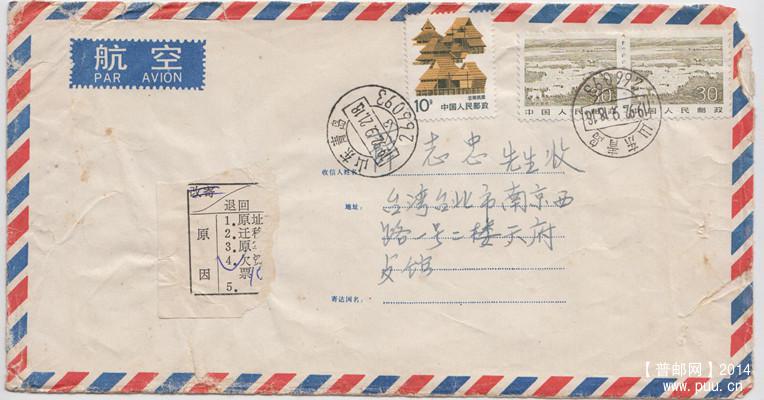 航空
PAR AVION
10分
中国人民邮政
30
中国人民邮政
30
山东青岛
266093
山东青岛
266093
志忠 先生收
收信人姓名:
地址:
台湾台北市南京西
路一号二楼天府
寄达国名:
改寄
退回
原因
1.原址
2.迁移
3.原
4.欠
票
5.
【普邮网】2014
www.puu.cn